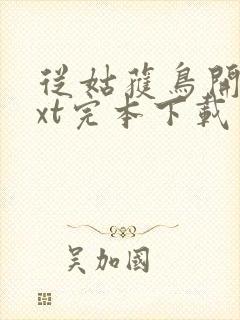 從姑獲鳥開
xt完本下載
吳加國